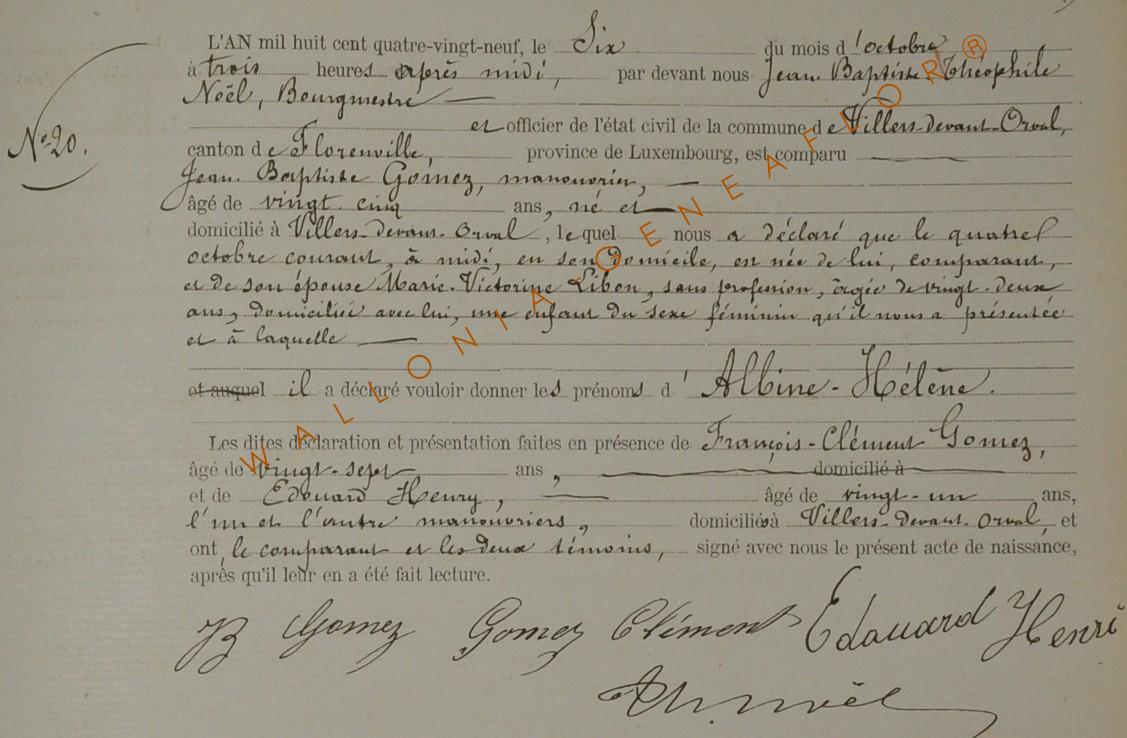 L'AN mil huit cent quatre-vingt-neuf, le Six du mois d'octobre
à trois heures après midi, par devant nous Jean Baptiste Théophile
Noël, Bourgmestre —
et officier de l'état civil de la commune de Villers-devant-Orval,
canton de Florenville, province de Luxembourg, est comparu —
Jean Baptiste Gomez, manouvrier, —
âgé de vingt cinq ans, né et —
domicilié à Villers-devant-Orval, lequel nous a déclaré que le quatre
octobre courant, à midi, en son domicile, est née de lui, comparant,
et de son épouse Marie-Victorine Libon, sans profession, âgée de vingt-deux
ans, domiciliée avec lui, une enfant du sexe féminin qu'il nous a présentée
et à laquelle —
et auquel il a déclaré vouloir donner les prénoms d'Albine-Hélène.
Nº 20.
Les dites déclaration et présentation faites en présence de François-Clément Gomez,
âgé de vingt-sept ans, — domicilié à
et de Edouard Henry, — âgé de vingt-un ans,
l'un et l'autre manouvriers, domiciliés à Villers-devant-Orval, et
ont, le comparant et les deux témoins, signé avec nous le présent acte de naissance,
après qu'il leur en a été fait lecture.
JB Gomez Gomez Clément Edouard Henri
Th. Noël
WALLONIA GENEAFLOR ®